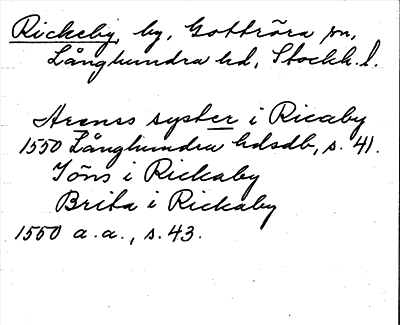 Rickeby, by, Gottröra sn,
Långhundra hd, Stockh. l.
Arenss syster i Ricaby
1550 Långhundra hdsdb, s. 41.
Jöns i Rickaby
Brita i Rickaby
1550 a.a., s. 43.